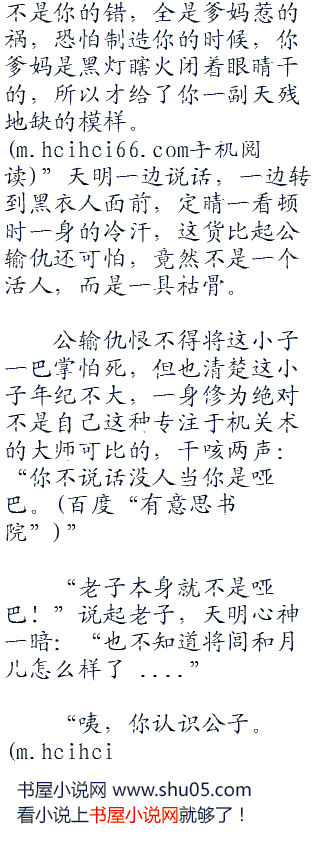 不是你的错，全是爹妈惹的
祸，恐怕制造你的时候，你
爹妈是黑灯瞎火闭着眼睛干
的，所以才给了你一副天残
地缺的模样。
(m.hcihci66.com手机阅
读)”天明一边说话，一边转
到黑衣人面前，定睛一看顿
时一身的冷汗，这货比起公
输仇还可怕，竟然不是一个
活人，而是一具枯骨。
公输仇恨不得将这小子
一巴掌怕死，但也清楚这小
子年纪不大，一身修为绝对
不是自己这种专注于机关术
的大师可比的，干咳两声：
“你不说话没人当你是哑
巴。(百度“有意思书
院”)”
“老子本身就不是哑
巴！”说起老子，天明心神
一暗：“也不知道将闾和月
儿怎么样了 ....”
“咦，你认识公子。
(m.hcihci
书屋小说网 www.shu05.com
看小说上书屋小说网就够了！